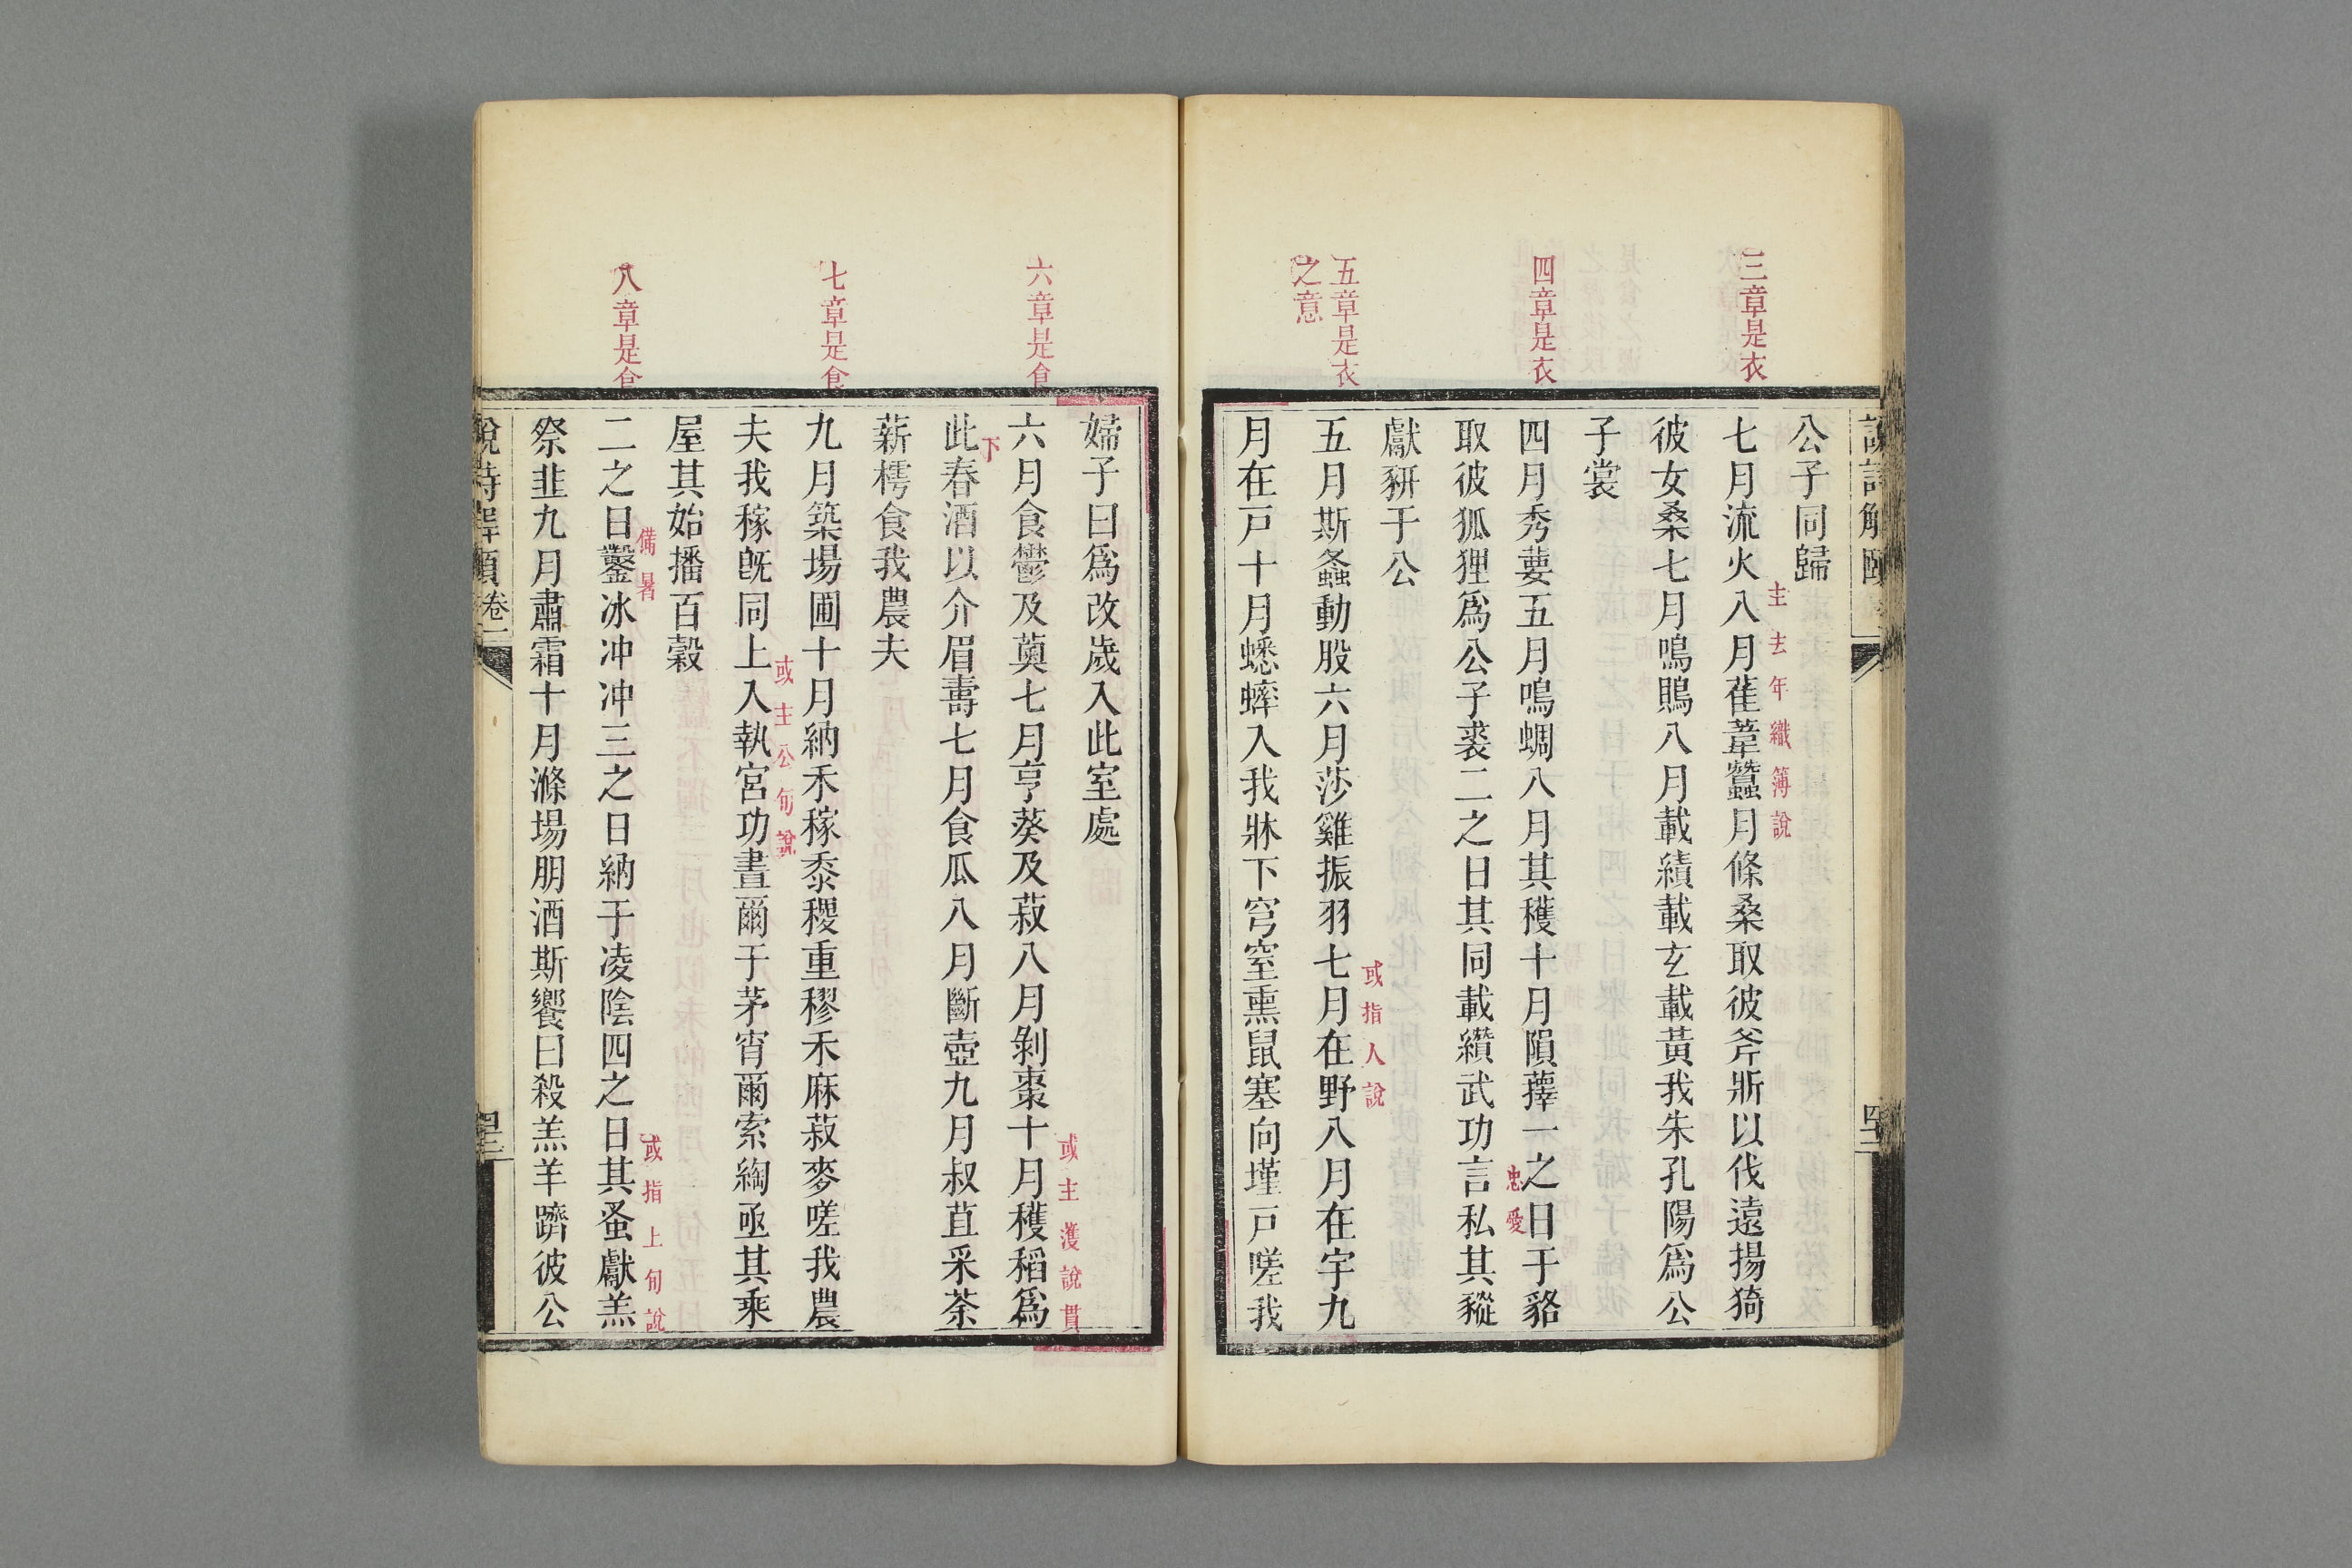 三章是衣
四章是衣
五章是衣
之意
公子同歸
七月流火八月萑葦蠶月條桑取彼斧斨以伐遠揚猗
主去年織簿說
彼女桑七月鳴鵙八月載績載玄載黃我朱孔陽爲公
子裳
四月秀葽五月鳴蜩八月其穫十月隕蘀一之日于貉
忠愛
取彼狐狸爲公子裘二之日其同載纘武功言私其豵
獻豜于公
五月斯螽動股六月莎雞振羽七月在野八月在宇九
或指人說
月在戸十月蟋蟀入我牀下穹窒熏鼠塞向墐戸嗟我
六章是食
七章是食
八章是食
婦子曰爲改歲入此室處
六月食鬱及薁七月亨葵及菽八月剝棗十月穫稻爲
或主濩說貫
下
此春酒以介眉壽七月食瓜八月斷壺九月叔苴采荼
薪樗食我農夫
九月築場圃十月納禾稼黍稷重穋禾麻菽麥嗟我農
夫我稼旣同上入執宮功晝爾于茅宵爾索綯亟其乘
或主公旬說
屋其始播百穀
二之日鑿冰冲冲三之日納于凌陰四之日其蚤獻羔
備暑
或指上旬說
祭韭九月肅霜十月滌場朋酒斯饗曰殺羔羊躋彼公
說詩解頤 卷一